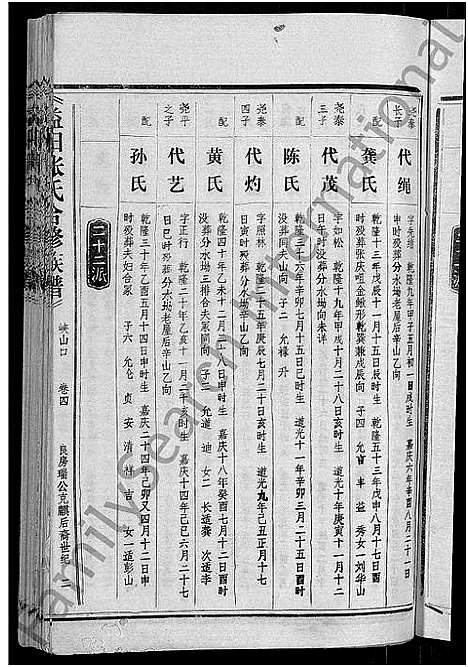 尧泰长子
代绳
字先增 乾隆九年甲子五月初一日戌时生 嘉庆六年辛酉八月二十一
申时殁葬分水坳老屋后辛山乙向
配
龚氏
乾隆十三年戊辰十一月十五日辰时生 乾隆五十三年戊申八月十七日酉
时殁葬张庆咀金锹形乾巽兼戌辰向 子四 允 丰 益 秀 女一 刘华山
尧泰三子
代茂
字如松 乾隆十九年甲戌十月二十八日亥时生 道光十年庚寅十一月一
日午时殁葬分水坳向未详
配
陈氏
乾隆三十六年辛卯七月十五日巳时生 道光十一年辛卯三月二十五日酉
时殁葬同夫山向 子二 允 禄 升
尧泰四子
代灼
字照林 乾隆二十五年庚辰七月二十日亥时生 道光九年己丑正月十七
日寅时殁葬分水坳老屋后辛山乙向
配
黄氏
乾隆四十年乙未十月二十二日申时生 嘉庆十八年癸酉七月十二日酉时
没葬分水坳三排合夫冢同向 子二 允 道 迪 女二 长适龚 次适李
尧平之子
代艺
字正行 乾隆二十年乙亥十一月二十亥时生 嘉庆十四年己巳六月二十七
日巳时殁葬分水坳老屋后辛山乙向
配
孙氏
乾隆三十年乙酉五月十四日申时生 嘉庆二十四年己卯又四月十二日申
时殁葬夫妇合冢 子六 允 伦 贞 安 清 祥 吉 女一 适彭山
二十二派
益阳张氏合修族谱
峡山口 卷四
良房瑞公克麒后裔世纪
Familysearch International